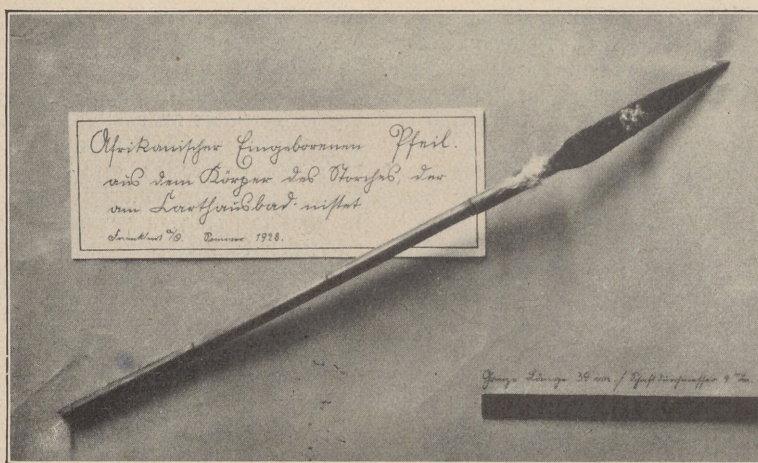 Afrikanischer Eingeborenen Pfeil.
aus dem Körper des Storches, der
am Carthausbad nistet
Frankfurt a/O. Sommer 1928.
Ganze Länge cm / Schaftdurchmesser